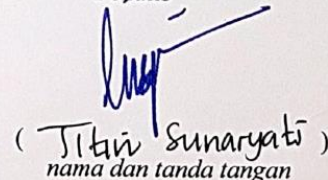 ( Titin Sunaryati )
nama dan tanda tangan